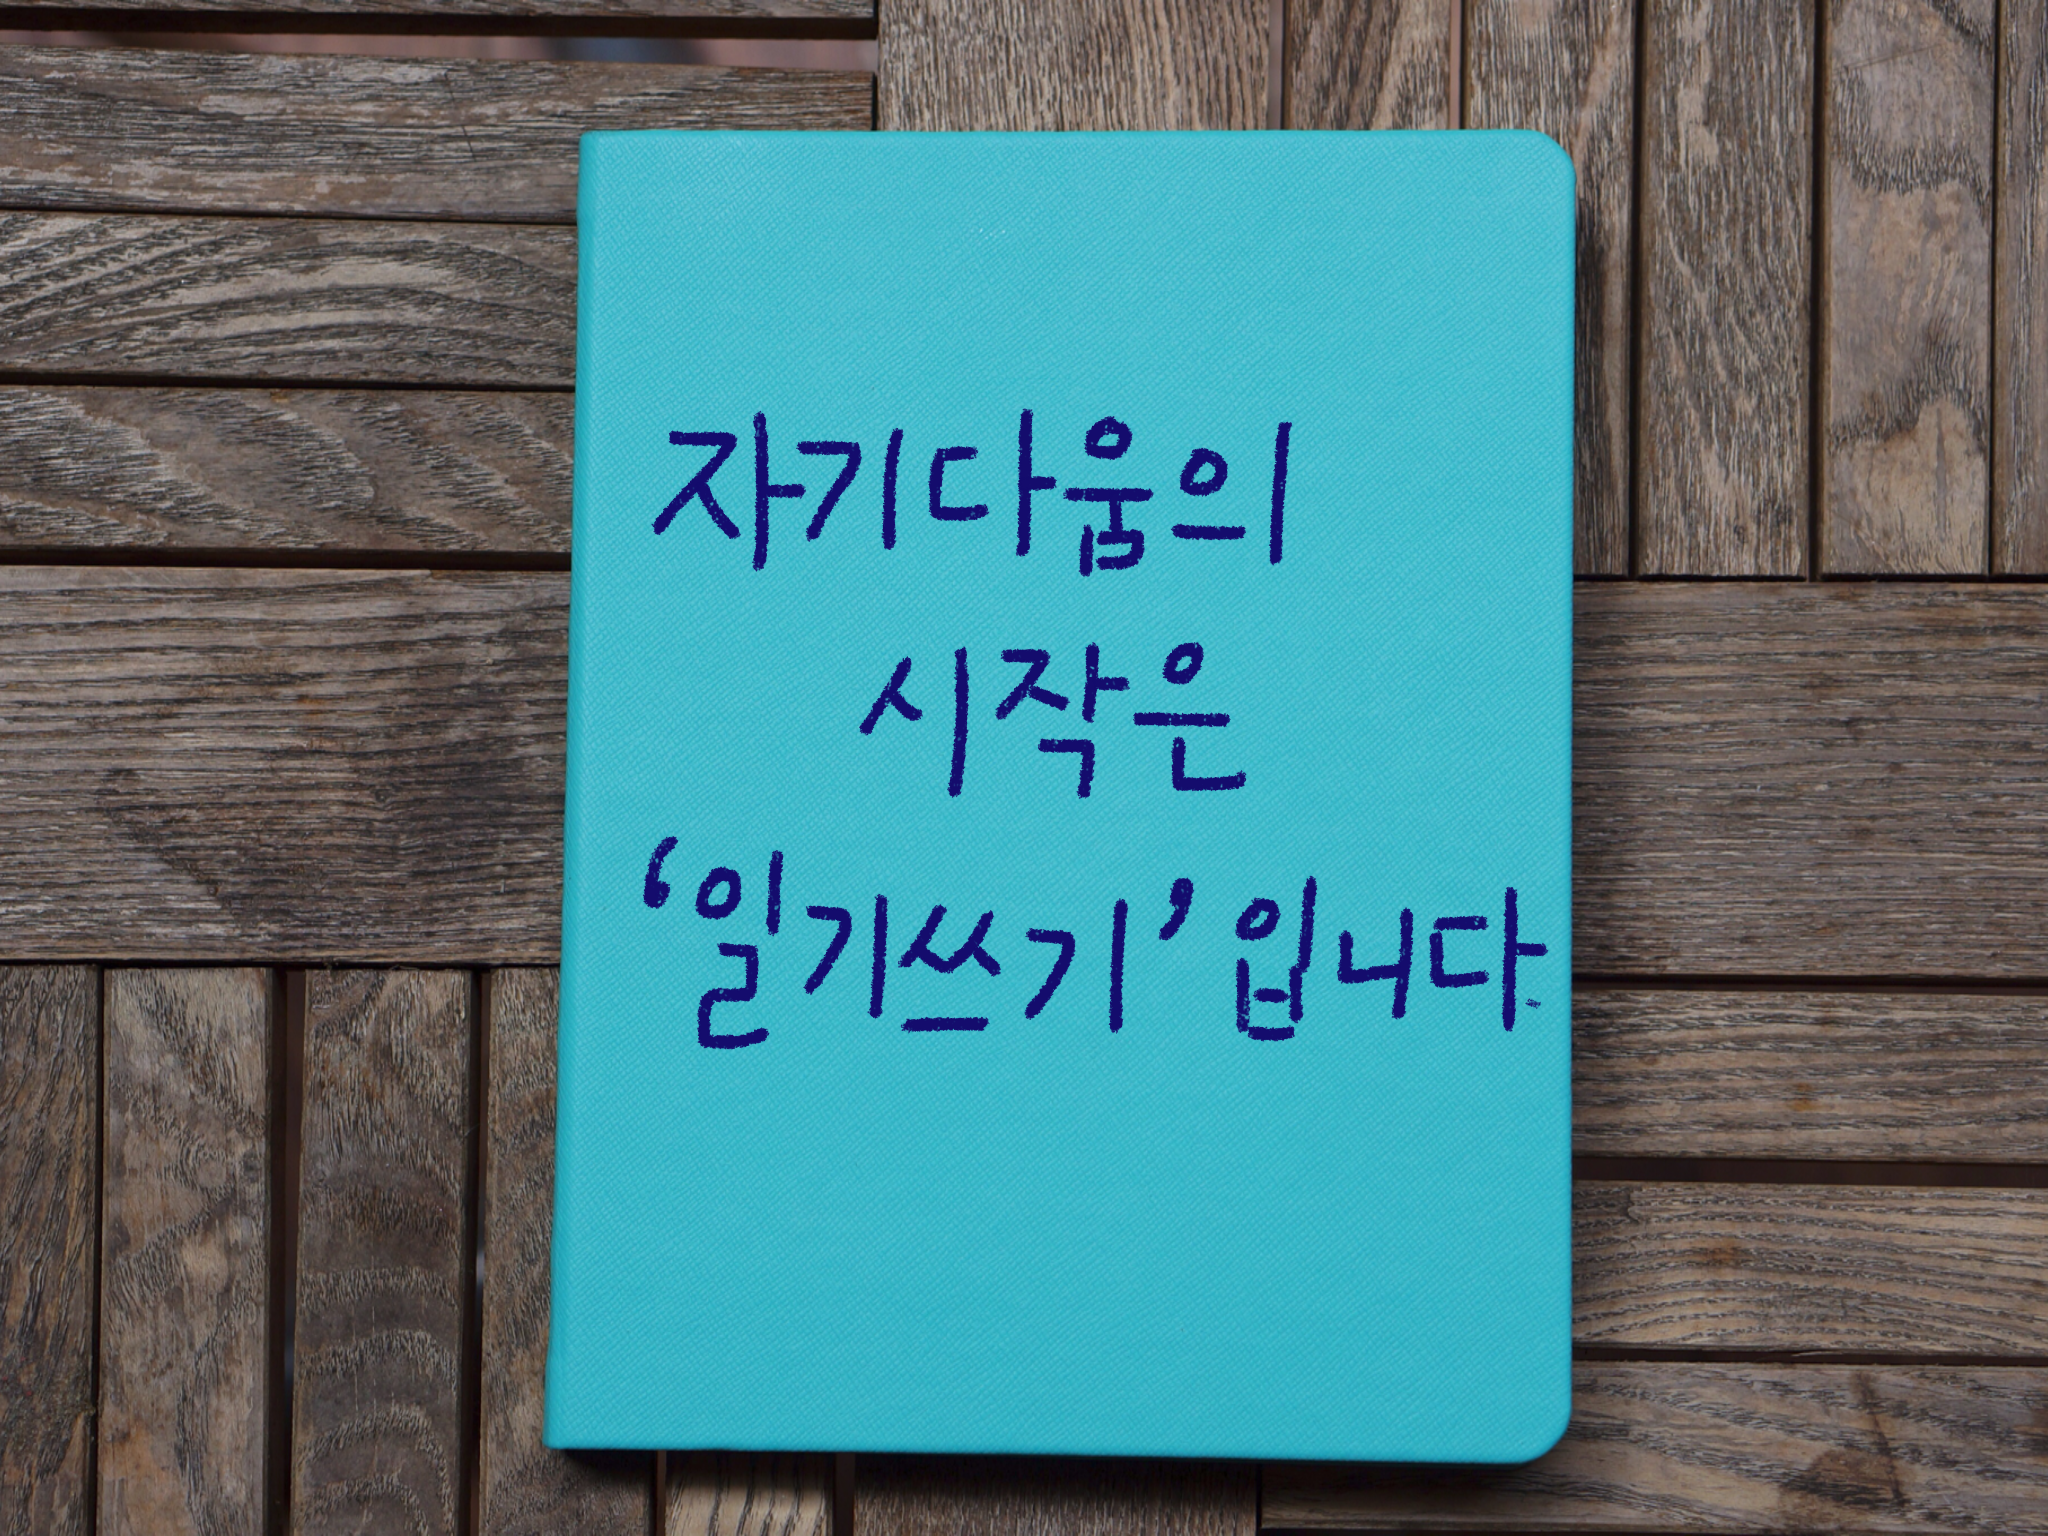 자기다움의
시작은
‘일기쓰기’ 입니다